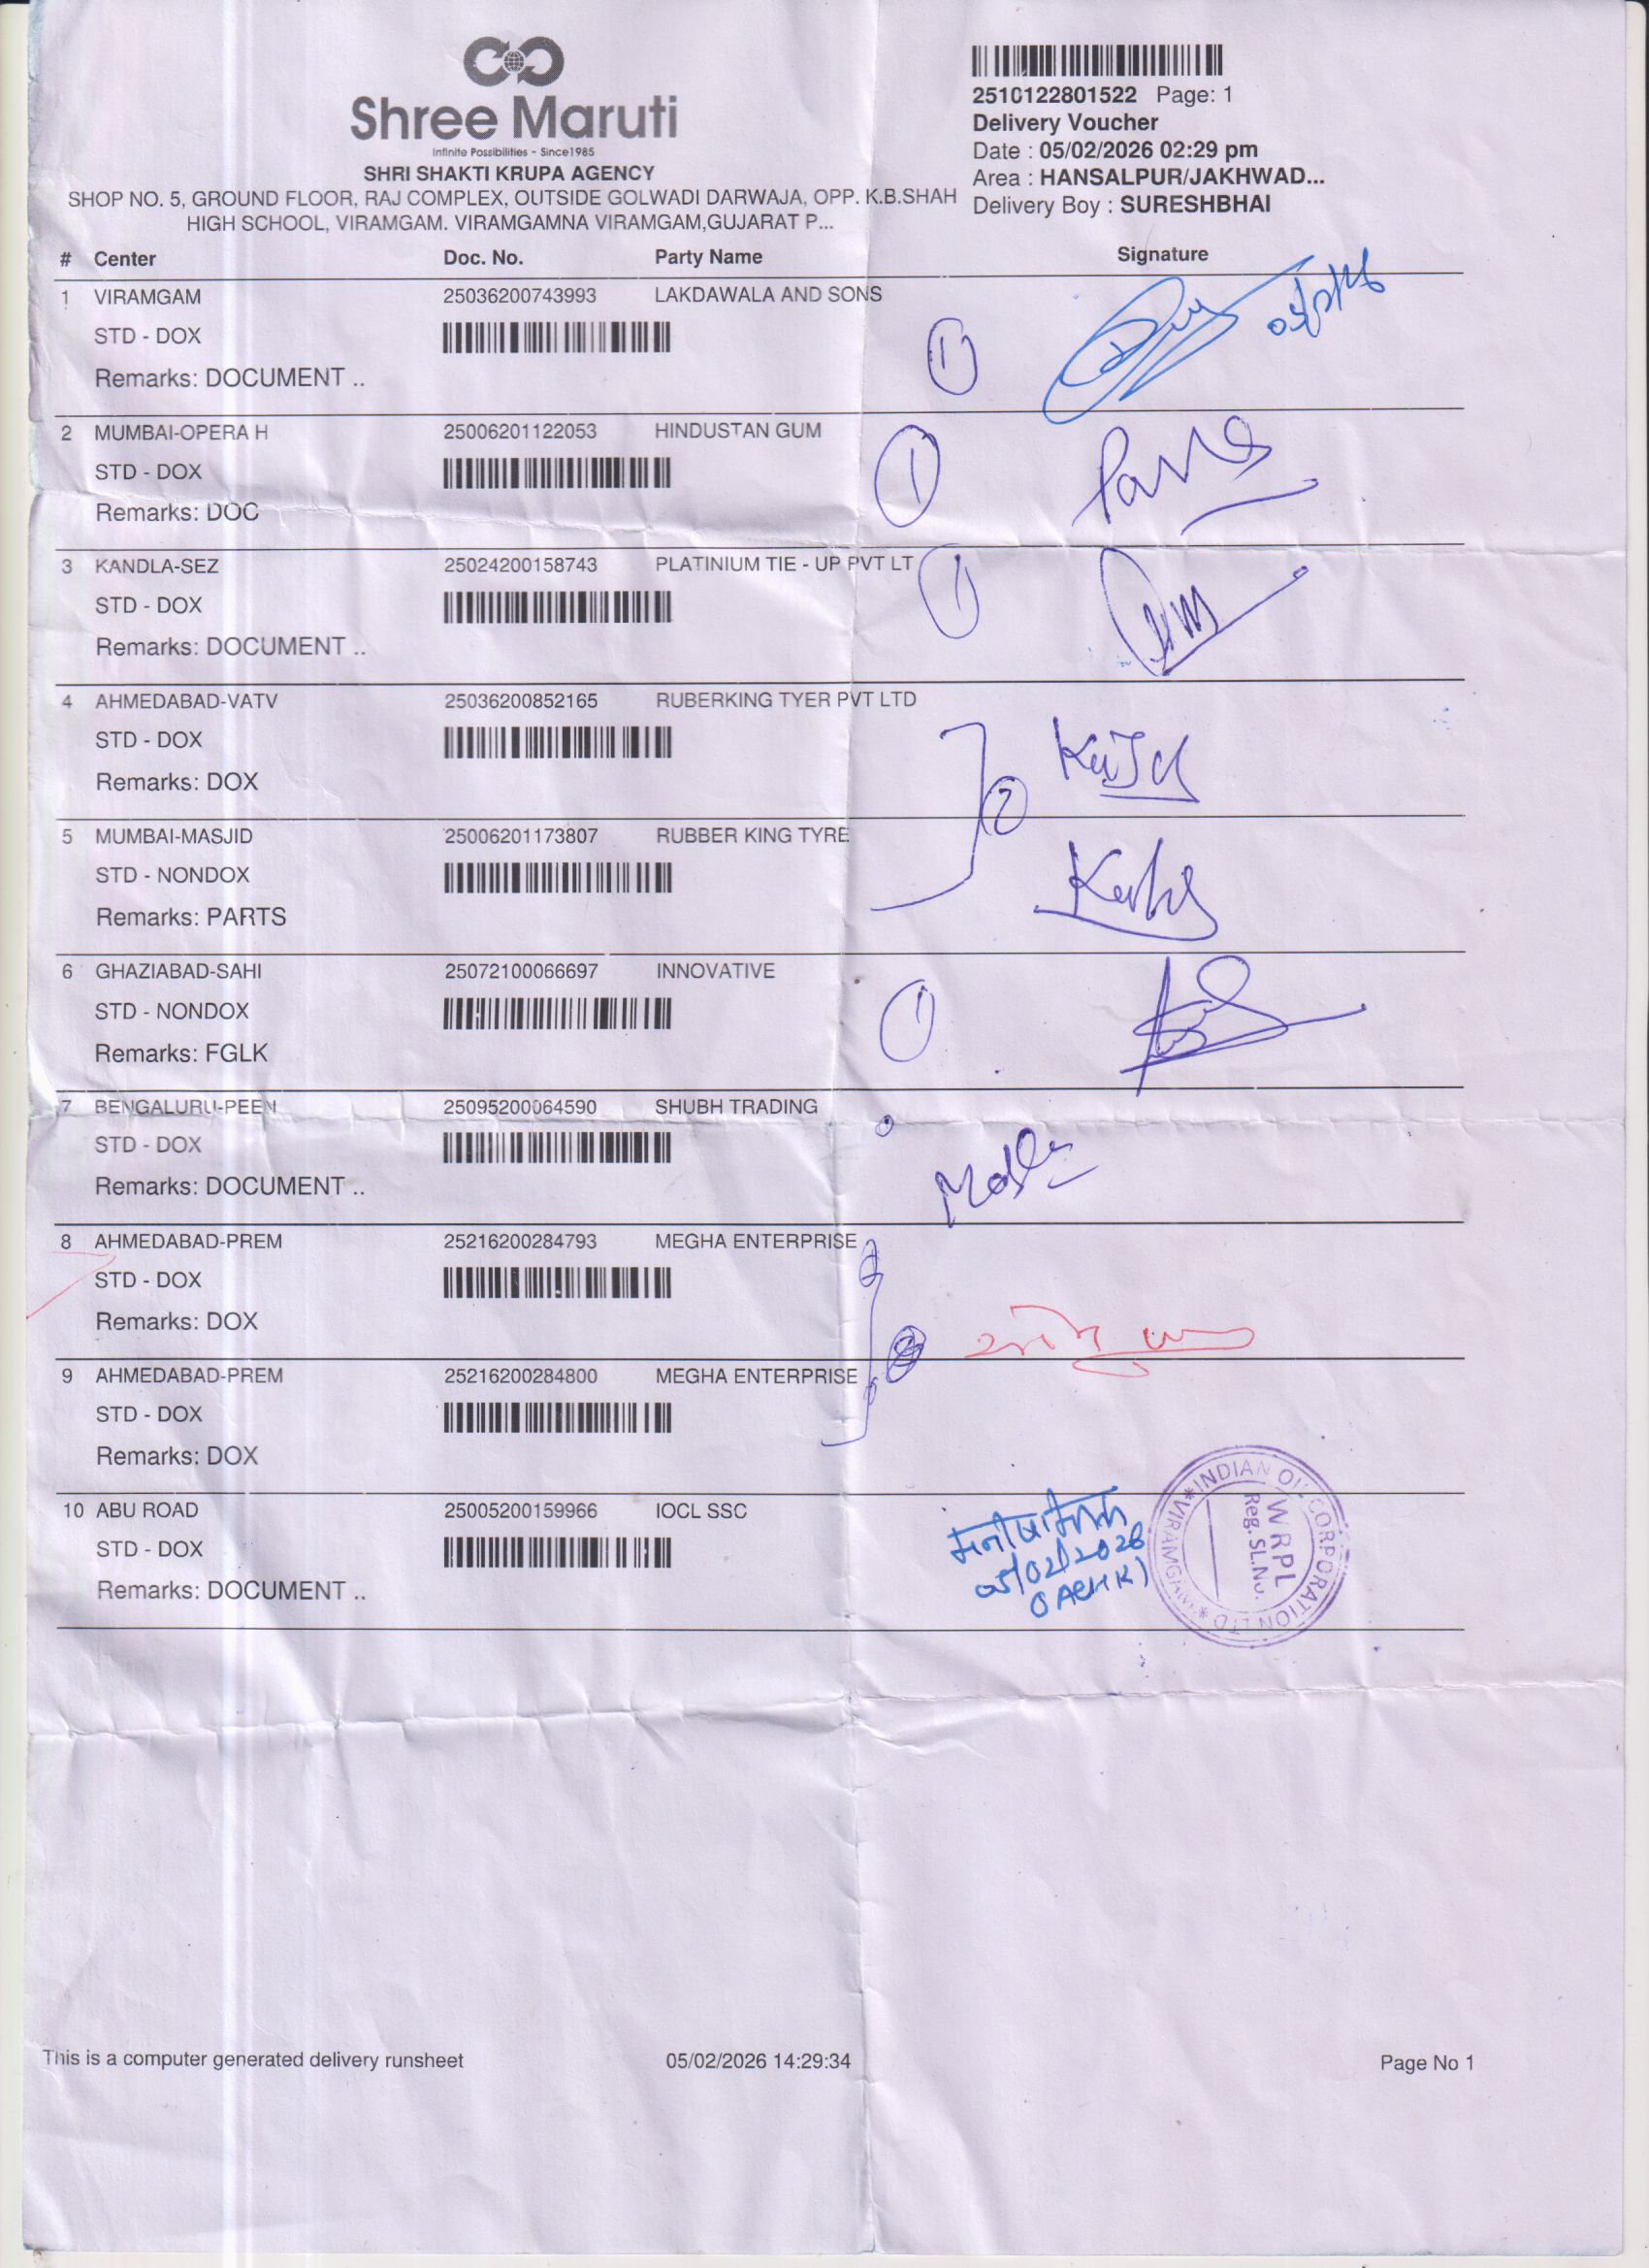 Shree Maruti
Infinite Possibilities - Since1985
SHRI SHAKTI KRUPA AGENCY
SHOP NO. 5, GROUND FLOOR, RAJ COMPLEX, OUTSIDE GOLWADI DARWAJA, OPP. K.B.SHAH
HIGH SCHOOL, VIRAMGAM. VIRAMGAMNA VIRAMGAM,GUJARAT P...
2510122801522 Page: 1
Delivery Voucher
Date : 05/02/2026 02:29 pm
Area : HANSALPUR/JAKHWAD...
Delivery Boy : SURESHBHAI
# Center Doc. No. Party Name Signature
1 VIRAMGAM 25036200743993 LAKDAWALA AND SONS
STD - DOX
1
Remarks: DOCUMENT ..
2 MUMBAI-OPERA H 25006201122053 HINDUSTAN GUM
STD - DOX
1
Remarks: DOC
3 KANDLA-SEZ 25024200158743 PLATINIUM TIE - UP PVT LT
STD - DOX
1
Remarks: DOCUMENT ..
4 AHMEDABAD-VATV 25036200852165 RUBERKING TYER PVT LTD
STD - DOX
Remarks: DOX
2
5 MUMBAI-MASJID 25006201173807 RUBBER KING TYRE
STD - NONDOX
Remarks: PARTS
6 GHAZIABAD-SAHI 25072100066697 INNOVATIVE
STD - NONDOX
1
Remarks: FGLK
7 BENGALURU-PEEN 25095200064590 SHUBH TRADING
STD - DOX
Remarks: DOCUMENT ..
8 AHMEDABAD-PREM 25216200284793 MEGHA ENTERPRISE
STD - DOX
Remarks: DOX
9 AHMEDABAD-PREM 25216200284800 MEGHA ENTERPRISE
STD - DOX
Remarks: DOX
10 ABU ROAD 25005200159966 IOCL SSC
STD - DOX
05/02/2026
Remarks: DOCUMENT ..
INDIAN OIL CORPORATION LTD * VIRAMGAM *
WRPL
Reg. SL.No.
This is a computer generated delivery runsheet 05/02/2026 14:29:34 Page No 1